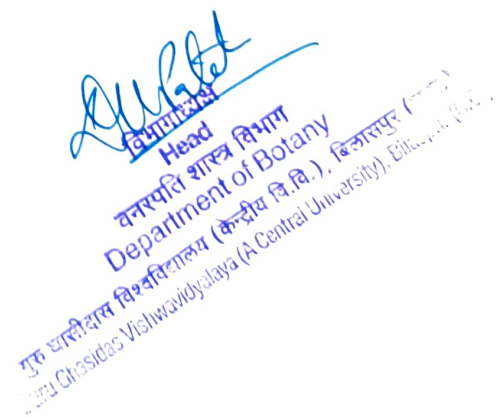 विभागाध्यक्ष
Head
वनस्पति शास्त्र विभाग
Department of Botany
गुरु घासीदास विश्वविद्यालय (केन्द्रीय वि.वि.), बिलासपुर
Ghasidas Vishwavidyalaya (A Central University),